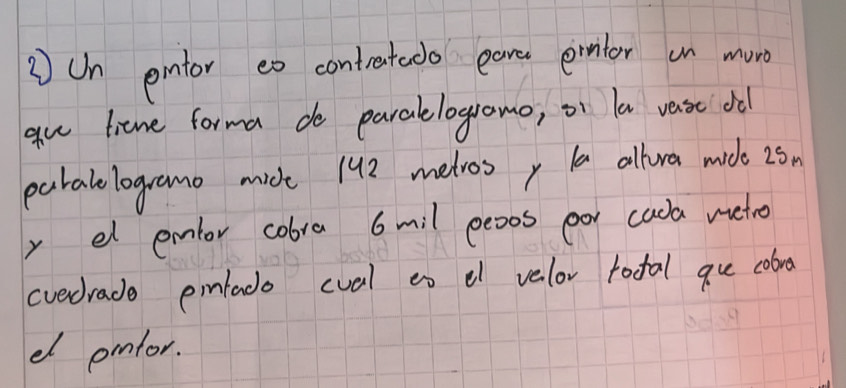 2) Un pintor es contratado para pintar un muro
que tiene forma de paralelogramo, si la vase del
paralelogramo mide 142 metros y la altura mide 25m
y el pintor cobra 6 mil pesos por cada metro
cuadrado pintado cual es el valor todtal que cobra
el pintor.